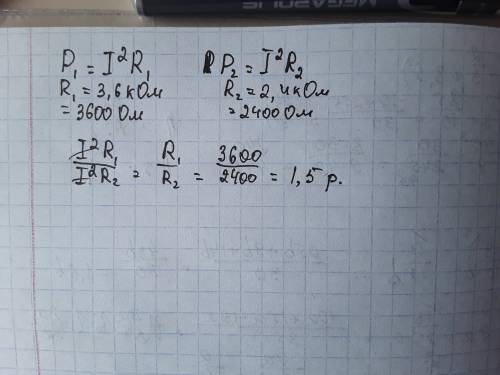 MEGAPOLIS
P₁ = I²R₁ P₂ = I²R₂
R₁ = 3,6 кОм R₂ = 2,4 кОм
= 3600 Ом = 2400 Ом
I²R₁/I²R₂ = R₁/R₂ = 3600/2400 = 1,5 р.